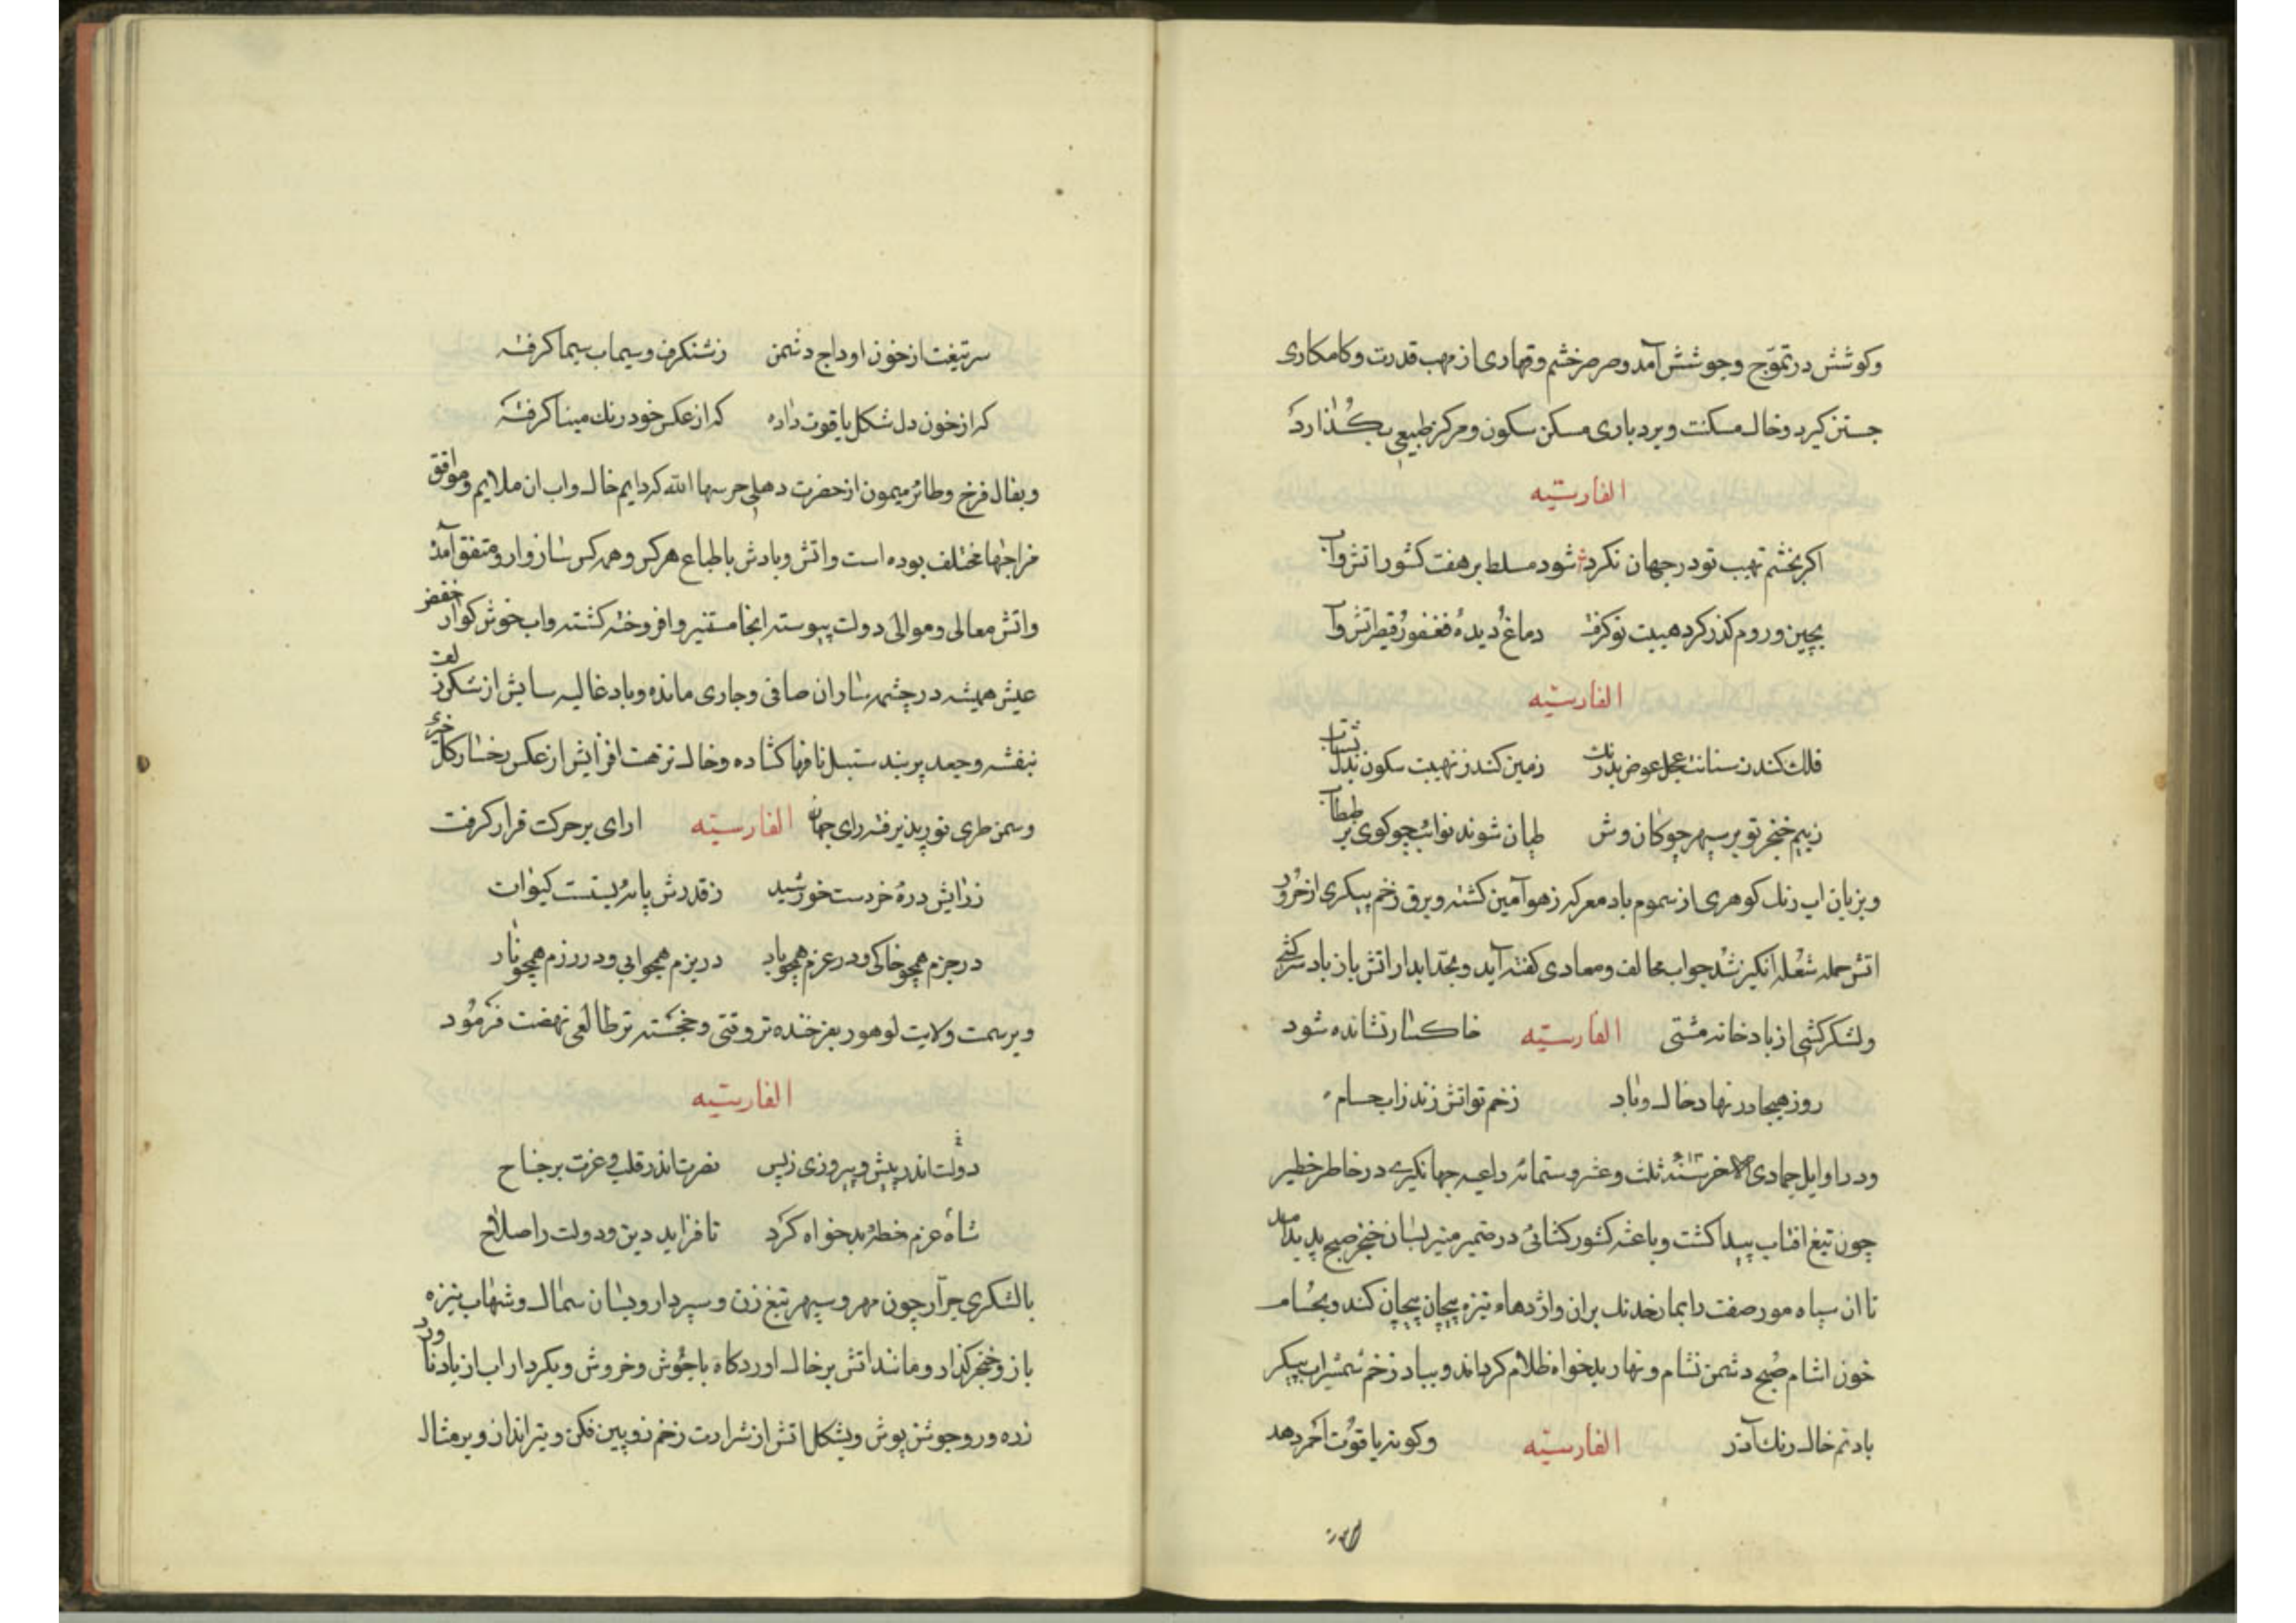 وکوشش در تموّج وجوشش آمد وصرصر خشم وقهاری از مهب قدرت وکامکاری
جستن کیرد وخاک مسکنت وبردباری مسکن سکون ومرکز طبیعی بکذارد
الفارسیّه
اکر بخشم تهیب تو در جهان نکرد شود مسلط بر هفت کشور اتش وآب
بچین وروم کذر کرد هیبت تو کرفت دماغ دیده فغفور قیصر اتش وآب
الفارسیّه
فلک کند ز سنانت عجل عوض بدرنک زمین کند ز نهیبت سکون بدل بشتاب
ز بیم خنجر تو بر سپهر چوکان وش طپان شوند نوائب چو کوی بر طبطاب
وبزبان اب رنک کوهری از سموم باد معرکه زهر آمین کشته وبرق زخم پیکری از خرور
اتش حمله شعله انکیز شد جواب مخالف ومعادی کفته آید وبحدّ ابدار اتش بار باد سرکشی
ولشکرکشی از باد خانه مشتی الفارسیّه خاکسار نشانده شود
روز هیجا در نهاد خاک وباد زخم تو اتش زند زاب حسام
ودر اوایل جمادی الاخر سنه ۶۱۳ ثلث وعشر وستمائه داعیه جهانکیری در خاطر خطیر
چون تیغ افتاب پیدا کشت وباعثه کشور کشائی در ضمیر منیر بسان خنجر صبح پدید آمد
تا ان سپاه مور صفت را بمار خدنک بران واژدهاء نیزه پیچان پیچان کند وبحسام
خون اشام صُبح دشمن شام ونهار بدخواه ظلام کرداند وبباد زخم شمشیر اب پیکر
باد تم خاک رنک آذر الفارسیّه وکونه یاقوت احمر دهد
سر تیغت از خون اوداج دشمن ز شنکرف وسیماب سیما کرفته
که از خون دل شکل یاقوت داده که از عکس خود رنک مینا کرفته
وبفال فرخ وطائر میمون از حضرت دهلی حرسها الله که دایم خاک واب ان ملایم وموافق
مزاجها مختلف بوده است واتش وبادش با طباع هر کس وهمه کس سازوار ومتفق آمده
واتش معالی وموالی دولت پیوسته انجا مستنیر وافروخته کشته واب خوش کوار خفض
عیش همیشه در چشمه ساران صافی وجاری مانده وباد غالیه سایش از شکن زلف
بنفشه وجعد پرند سنبل نافها کشاده وخاک نزهت افزایش از عکس رخسار کل خیری
وسمن طری نور پذیرفته رای جهان الفارسیّه ارای بر حرکت قرار کرفت
ز رایش ذره خردست خورشید ز قدرش پایه پستست کیوان
در جزم همچو خاکی ودر عزم همچو باد در بزم همچو ابی ودر رزم همچو نار
وبر سمت ولایت لوهور بفرخنده تر وقتی وخجسته تر طالعی نهضت فرمُود
الفارسیّه
دولت اندر پیش وپیروزی ز پس نصرت اندر قلب وعزت بر جناح
شاه عزم خطهٔ بدخواه کرد تا فزاید دین ودولت را صلاح
با لشکری جرّار چون مهر وسپهر تیغ زن وسپردار وبسان سماک وشهاب نیزه
باز وخنجر کذار ومانند اتش بر خاک اوردکاه با جوش وخروش وبکردار اب از باد ناورد
زره ور وجوشن پوش وبشکل اتش از شرارت زخم زوبین فکن وتیر انداز وبر مثال